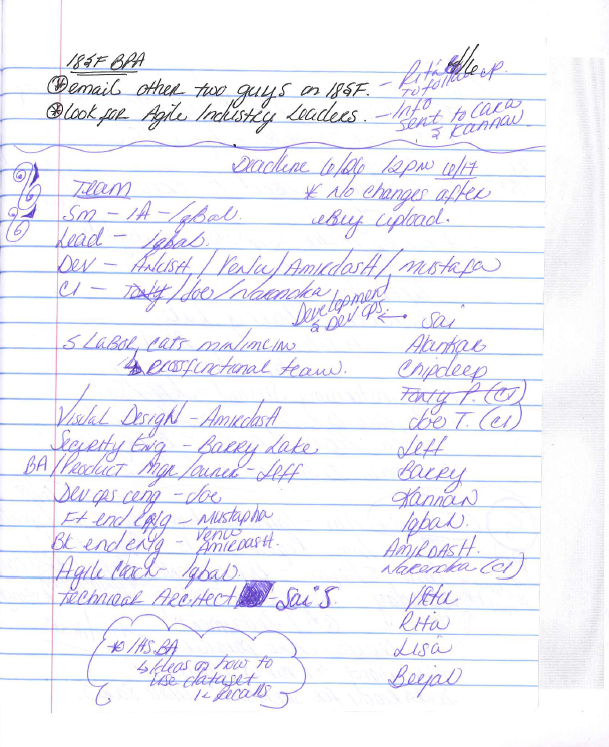 18&F BPA
* email other two guys on 18&F. - Rita to follow up.
* Look for Agile Industry Leaders. - Info sent to Cara & Kannan
Deadline 6/06 12pm 6/17
* No changes after eBuy upload.
Team
SM - IA - Iqbal.
Lead - Iqbal.
Dev - Ankish / Venu / Amirdash / mustafa
CI - Tony / Joe / Narendra
Development & DevOps. ←
5 Labor cats minimum
↳ crossfunctional team.
Visual Design - Amirdash
Security Eng - Barry Lake
BA / Product Mgr / owner - Jeff
Dev ops eng - Joe
Ft end eng - Mustapha
Bk end eng - Venu Amirdash.
Agile Coach - Iqbal.
Technical Architect - Sai S.
Sai
Alankar
Chipdeep
Tony P. (CI)
Joe T. (CI)
Jeff
Barry
Kannan
Iqbal.
Amirdash.
Narendra (CI)
Rita
Lisa
Beejal
* IHS.BA
↳ Ideas on how to use dataset
1. Recalls